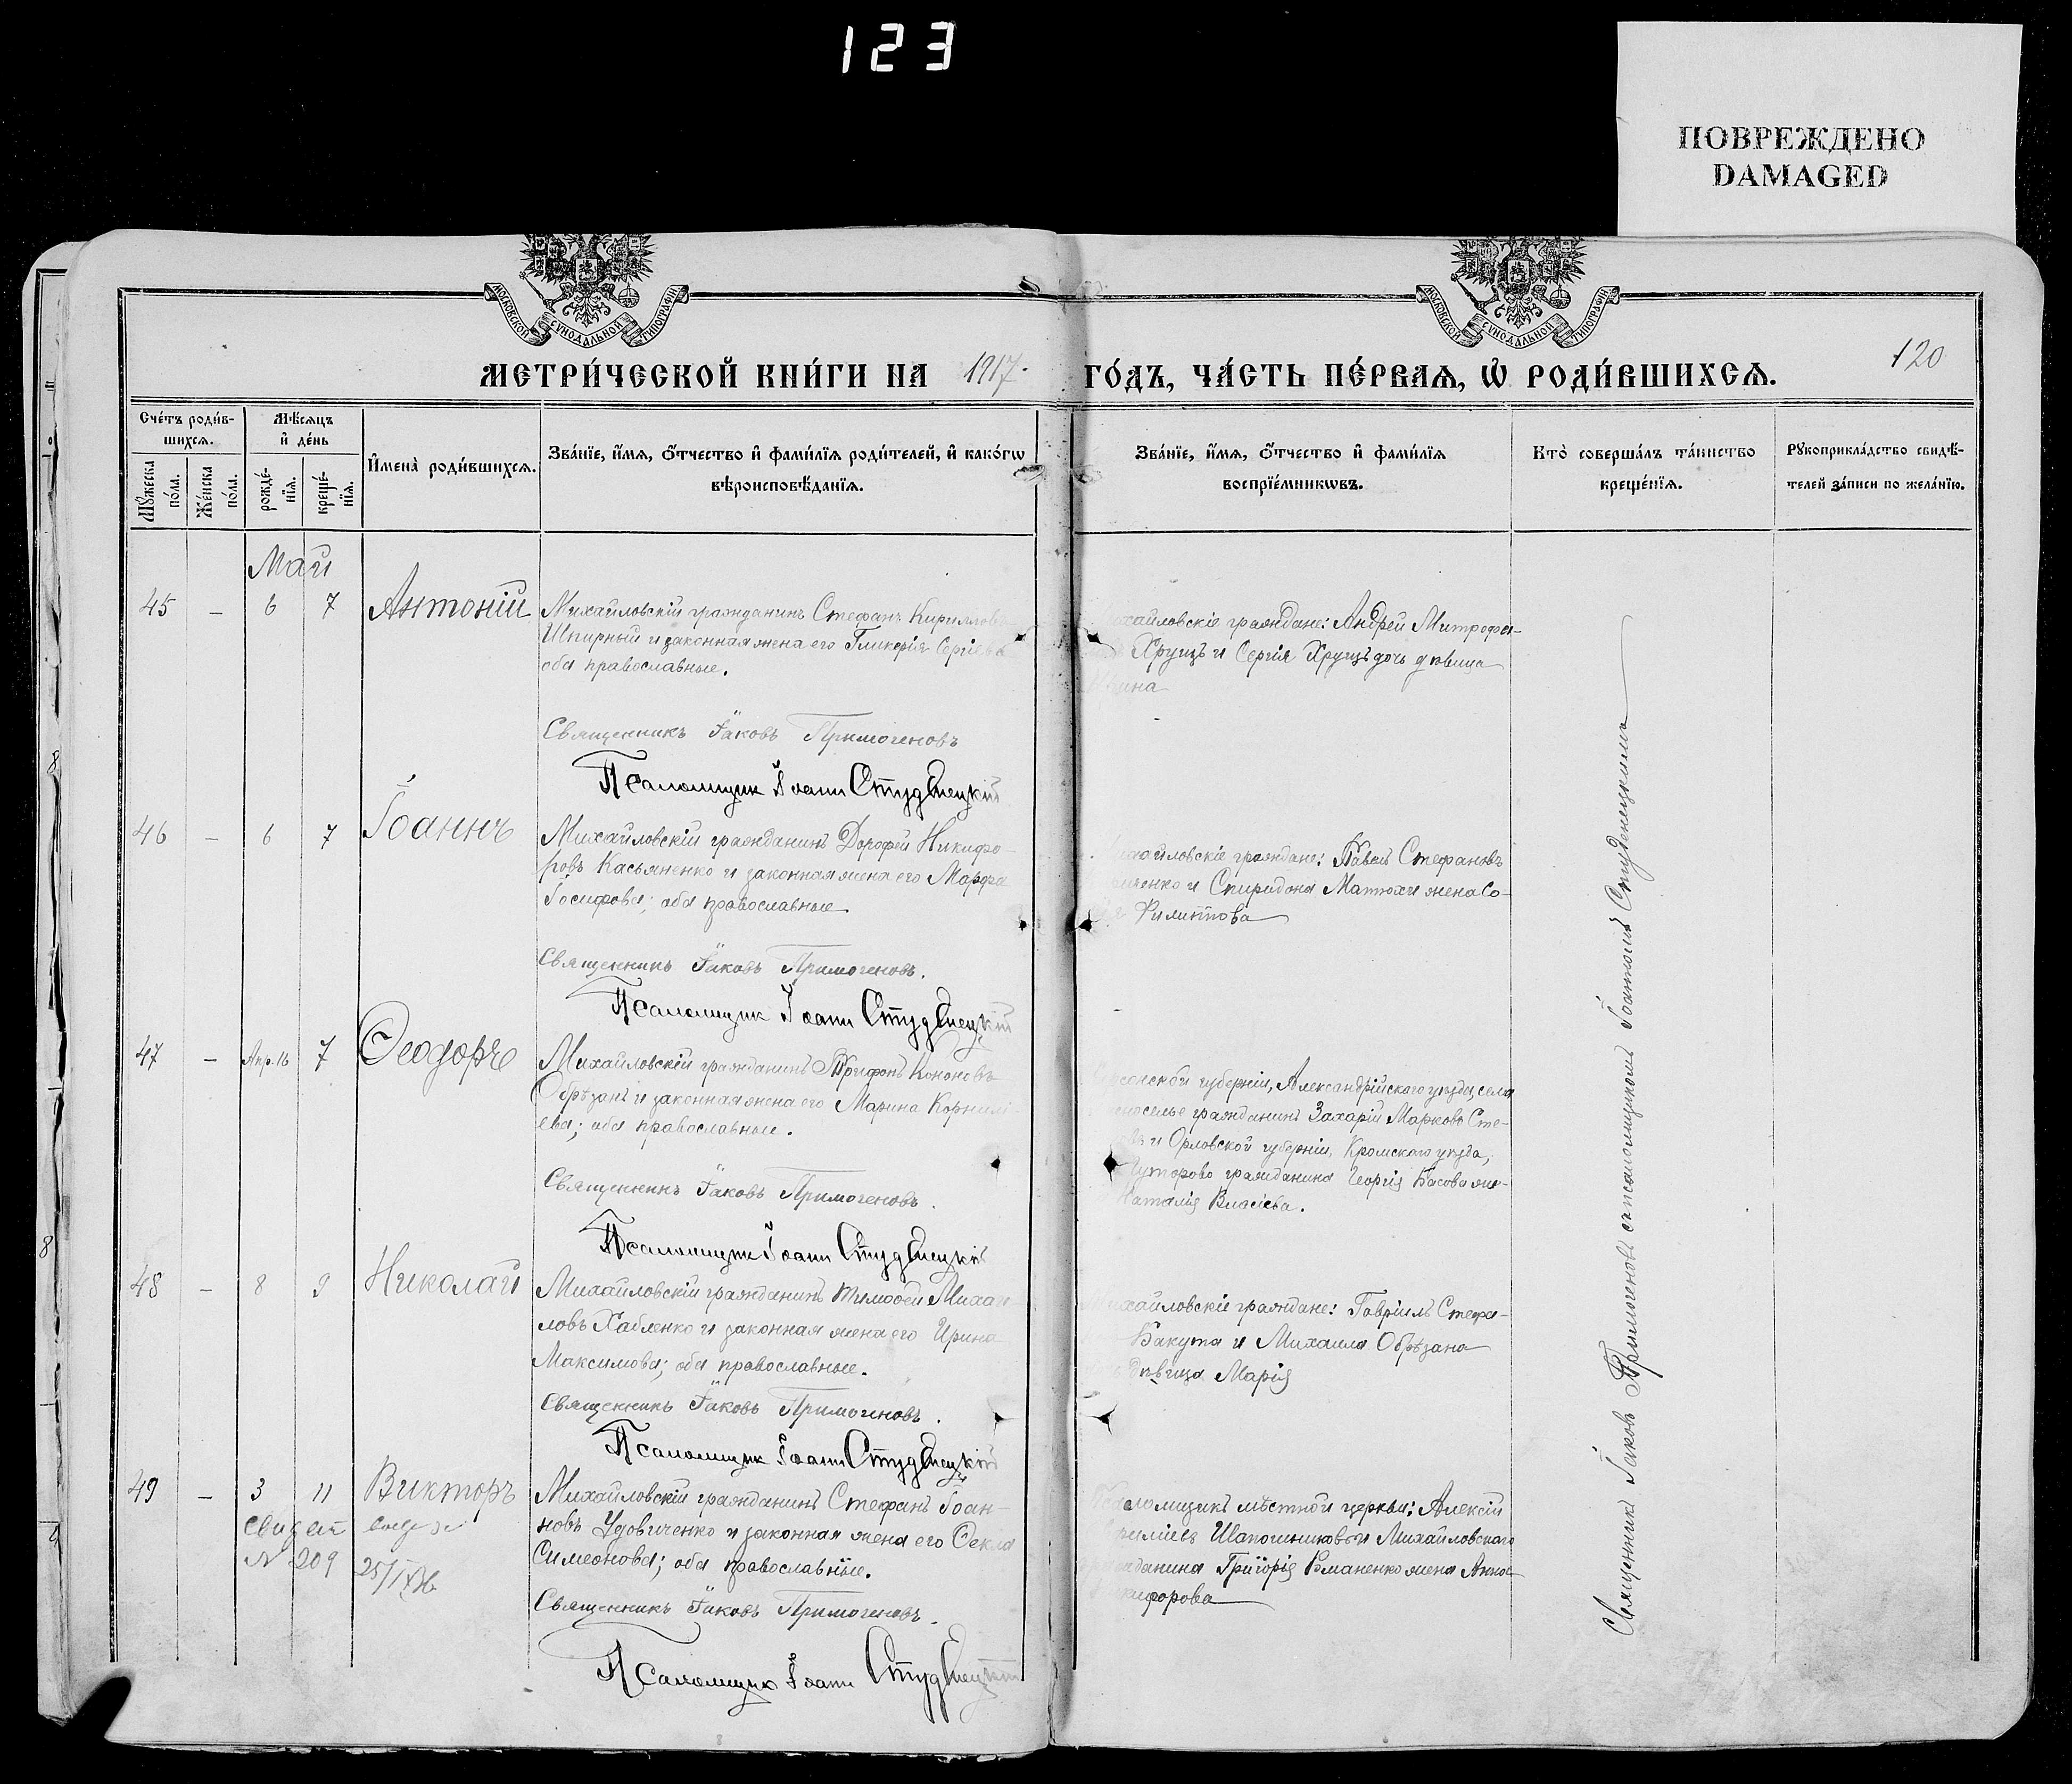 123
ПОВРЕЖДЕНО
DAMAGED
МОСКОВСКОЙ СѴНОДАЛЬНОЙ ТИПОГРАФІИ
МОСКОВСКОЙ СѴНОДАЛЬНОЙ ТИПОГРАФІИ
МЕТРИ́ЧЕСКОЙ КНИ́ГИ НА 1917.
ГО́ДЪ, ЧА́СТЬ ПЕ́РВАЯ, Ѡ РОДИ́ВШИХСЯ.
120
Сче́тъ роди́в-
шихся.
Мꙋжеска по́ла.
Же́нска по́ла.
Мѣ́сяцъ
и҆ де́нь
рожде́-
нїя.
креще́-
нїя.
И҆мена̀ роди́вшихся.
Зва́нїе, и҆́мя, ѻ҆́тчество и҆ фами́лїя роди́телей, и҆ како́гѡ
вѣроисповѣ́данїя.
Зва́нїе, и҆́мя, ѻ҆́тчество и҆ фами́лїя
воспрїе́мникѡвъ.
Кто̀ соверша́лъ та́инство
креще́нїя.
Рꙋкоприкла́дство свидѣ́-
телей за́писи по жела́нїю.
Май
45 – 6 7 Антоній
Михайловскій гражданинъ Стефанъ Кириллов
Шпирный и законная жена его Гликерія Сергіева
оба православные.
Священникъ Іаковъ Примогеновъ
Псаломщик Іоанн Студенецкій
хайловскіе граждане: Андрей Митрофа-
Хрущъ и Сергія Хрущъ дочь дѣвица
46 – 6 7 Іоаннъ
Михайловскій гражданинъ Дорофей Никифо-
ровъ Касьяненко и законная жена его Марфа
Іосифова; оба православные
Священникъ Іаковъ Примогеновъ.
Псаломщик Іоанн Студенецкій
хайловскіе граждане: Павелъ Стефановъ
ченко и Спиридона Матюхи жена Со-
Филиппова
47 – Апр. 16 7 Ѳеодоръ
Михайловскій гражданинъ Трифонъ Кононовъ
Обрѣзанъ и законная жена его Марина Корнилі-
ева; оба православные.
Священникъ Іаковъ Примогеновъ.
Псаломщик Іоанн Студенецкій
рсонской губерніи, Александрійскаго уѣзда, села
селье гражданинъ Захарій Марковъ Сте-
и Орловской губерніи, Кромскаго уѣзда,
гуторово гражданина Георгія Басова же-
Наталія Власіева.
48 – 8 9 Николай
Михайловскій гражданинъ Тимоѳей Михаи-
ловъ Хабленко и законная жена его Ирина
Максимова; оба православные.
Священникъ Іаковъ Примогеновъ.
Псаломщик Іоанн Студенецкій
ихайловскіе граждане: Гавріилъ Стефа-
Бакута и Михаила Обрѣзана
дѣвица Марія
49 – 3 11 Викторъ
№ 209
Михайловскій гражданинъ Стефанъ Іоан-
новъ Удовиченко и законная жена его Ѳекла
Симеонова; оба православные.
Священникъ Іаковъ Примогеновъ.
Псаломщик Іоанн Студенецкій
саломщикъ мѣстной церкви: Алексій
Шапошниковъ и Михайловскаго
гражданина Григорія Романенко жена Анна
кифорова
Священник Іаковъ Примогеновъ съ псаломщикомъ Іоанномъ Студенецкимъ